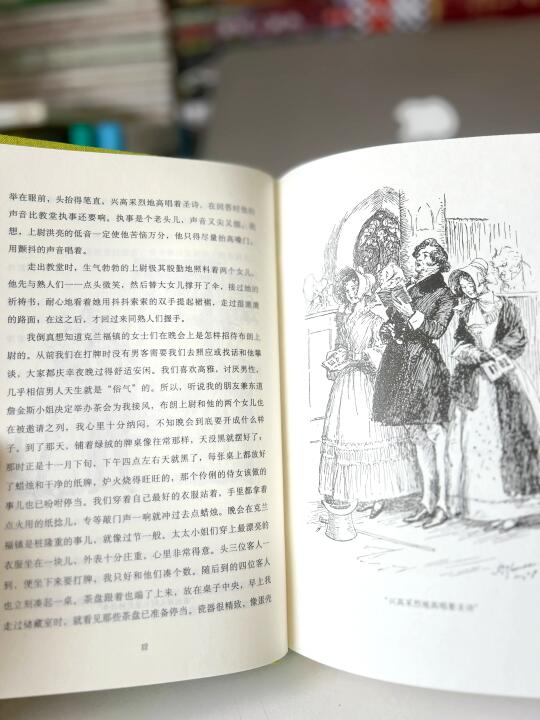 举在眼前，头抬得笔直，兴高采烈地高唱着圣诗，在回答时他的
声音比教堂执事还要响。执事是个老头儿，声音又尖又细，我
想，上尉洪亮的低音一定使他苦恼万分，他只得尽量抬高嗓门，
用颤抖的声音唱着。
走出教堂时，生气勃勃的上尉极其殷勤地照料着两个女儿，
他先与熟人们——点头微笑，然后替大女儿撑开了伞，接过她的
祈祷书，耐心地看着她用抖抖索索的双手提起裙裾，走过湿漉漉
的路面；在这之后，才回过来同熟人们握手。
我倒真想知道克兰福镇的女士们在晚会上是怎样招待布朗上
尉的。从前我们在打牌时没有男客需要我们去照应或找话和他攀
谈，大家都庆幸夜晚过得舒适安闲。我们喜欢高雅，讨厌男性，
几乎相信男人天生就是“俗气”的。所以，听说我的朋友兼东道
詹金斯小姐决定举办茶会为我接风，布朗上尉和他的两个女儿也
在被邀请之列，我心里十分纳闷，不知晚会到底要开成什么样
子。到了那天，铺着绿绒的牌桌像往常那样，天没黑就摆好了；
那时正是十一月下旬，下午四点左右天就黑了，每张桌上都放好
了蜡烛和干净的纸牌，炉火烧得旺旺的，那个伶俐的侍女该做的
事儿也已吩咐停当。我们穿着自己最好的衣服站着，手里都拿着
点火用的纸捻儿，专等敲门声一响就冲过去点蜡烛。晚会在克兰
福镇是桩隆重的事儿，就像过节一般。太太小姐们穿上最漂亮的
衣服坐在一块儿，外表十分庄重，心里非常得意。头三位客人一
到，便坐下来要打牌，我只好和他们凑个数。随后到的四位客人
也立刻凑起一桌。茶盘跟着也端了上来，放在桌子中央，早上我
走过储藏室时，就看见那些茶盘已准备停当。瓷器很精致，像蛋壳
“兴高采烈地高唱着圣诗”